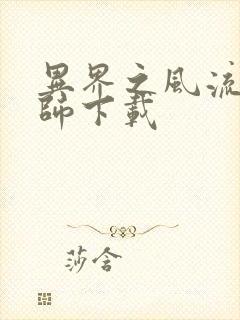 異界之風流
師下載
莎含